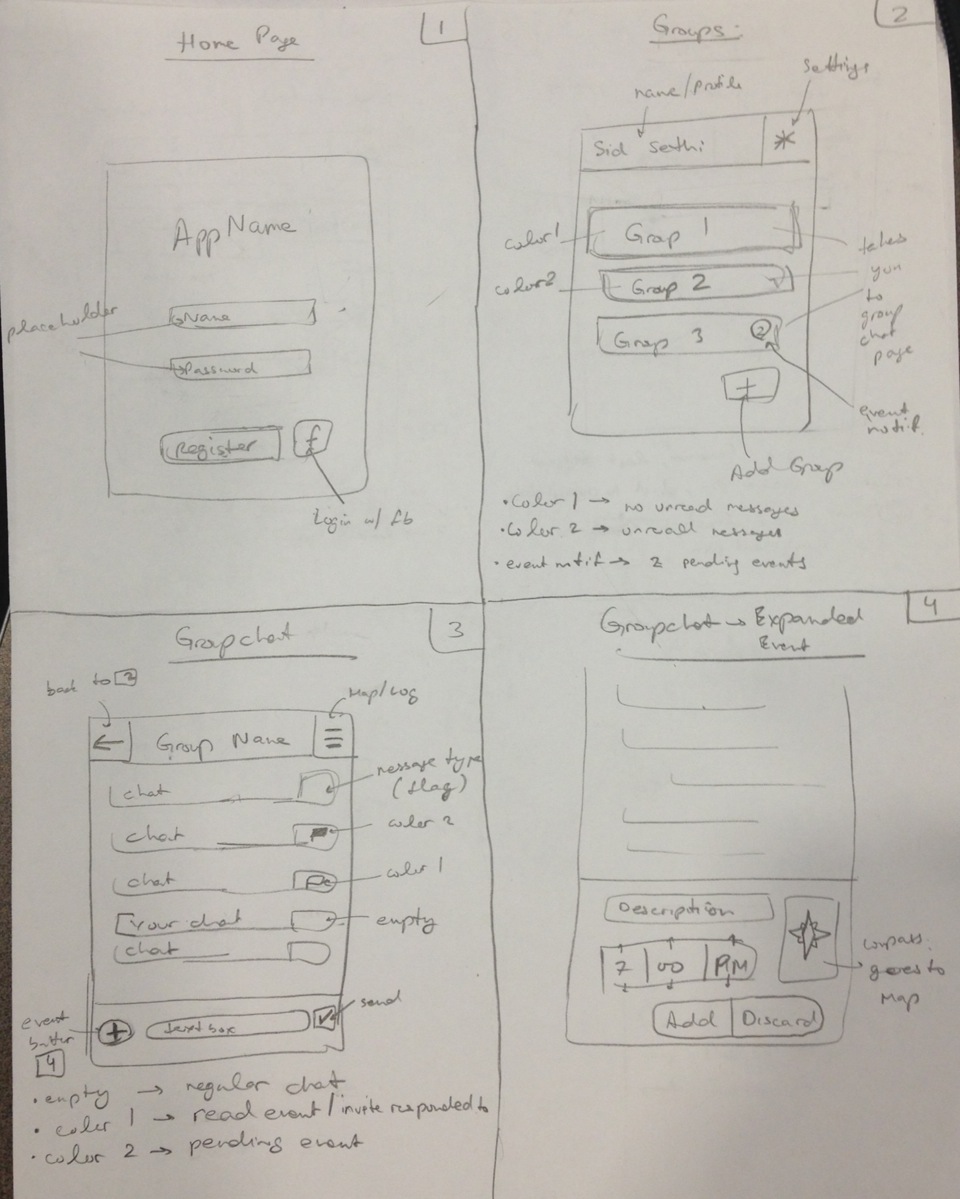 1
Home Page
App Name
placeholder
Name
Password
Register
f
Login w/ fb
2
Groups:
name/profile
settings
Sid Sethi
*
color 1
Group 1
color 2
Group 2
Group 3
2
takes
you
to
group
chat
page
event
notif.
+
Add Group
• color 1 → no unread messages
• color 2 → unread messages
• event notif → 2 pending events
3
Groupchat
back to 2
Map/Log
←
Group Name
chat
message type
(flag)
chat
color 2
chat
color 1
Your chat
empty
chat
send
event
button
4
+
text box
• empty → regular chat
• color 1 → read event/invite responded to
• color 2 → pending event
4
Groupchat → Expanded
Event
Description
7 00 PM
compass
goes to
Map
Add Discard